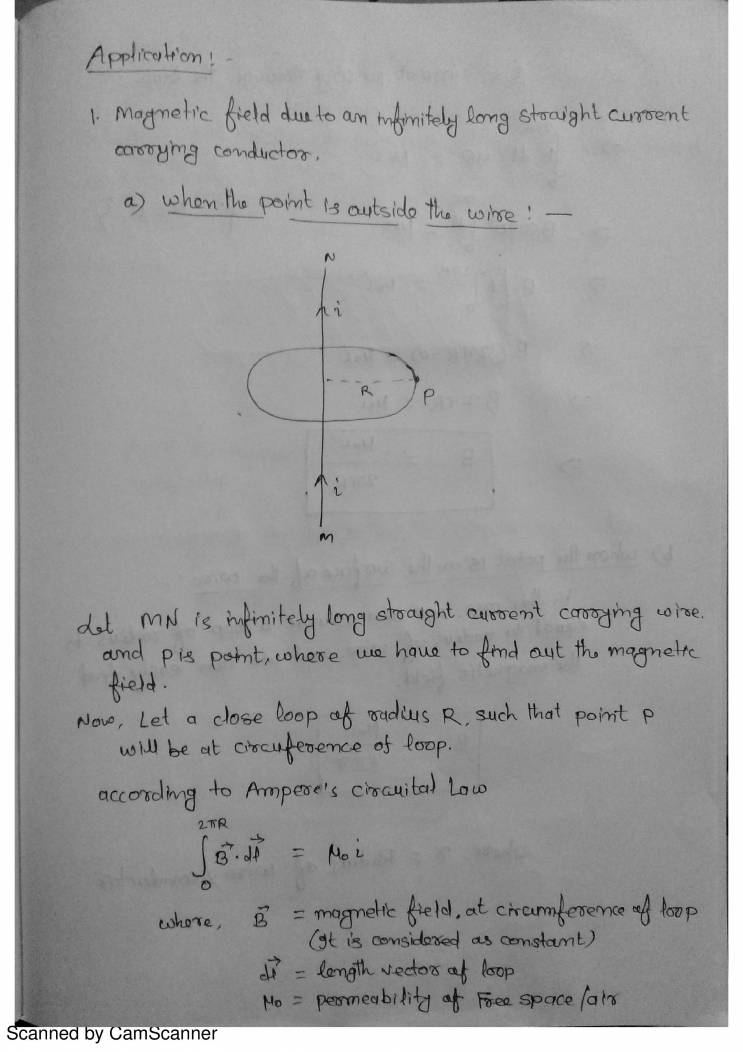 Application: -
1. Magnetic field due to an infinitely long straight current
carrying conductor.
a) when the point is outside the wire: —
N
i
R
P
i
M
Let MN is infinitely long straight current carrying wire.
and P is point, where we have to find out the magnetic
field.
Now, Let a close loop of radius R, such that point P
will be at circuference of loop.
according to Ampere's circuital Law
2πR
∫ B⃗ · dl⃗ = μ₀ i
0
where, B⃗ = magnetic field, at circumference of loop
(It is considered as constant)
dl⃗ = length vector of loop
μ₀ = permeability of Free space/air
Scanned by CamScanner